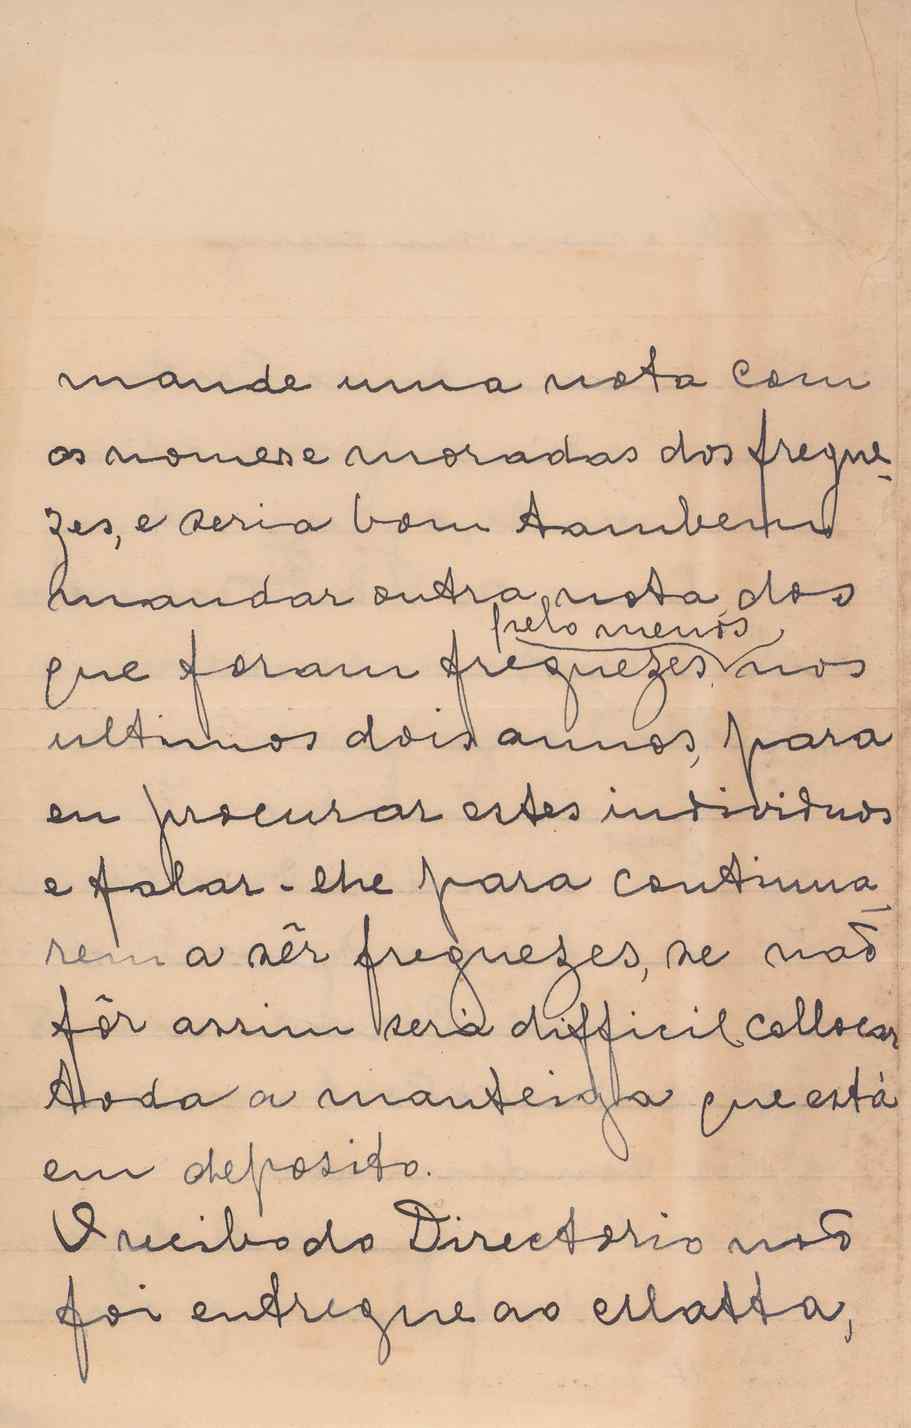 mande uma nota com
os nomes e moradas dos fregue-
zes, e seria bom tambem
mandar outra nota dos
pelo menos
que foram freguezes, nos
ultimos dois annos, para
eu procurar estes individuos
e falar-lhe para continua-
rem a sêr freguezes, se não
fôr assim será difficil collocar
toda a manteiga que está
em deposito.
O recibo do Directorio não
foi entregue ao Matta,